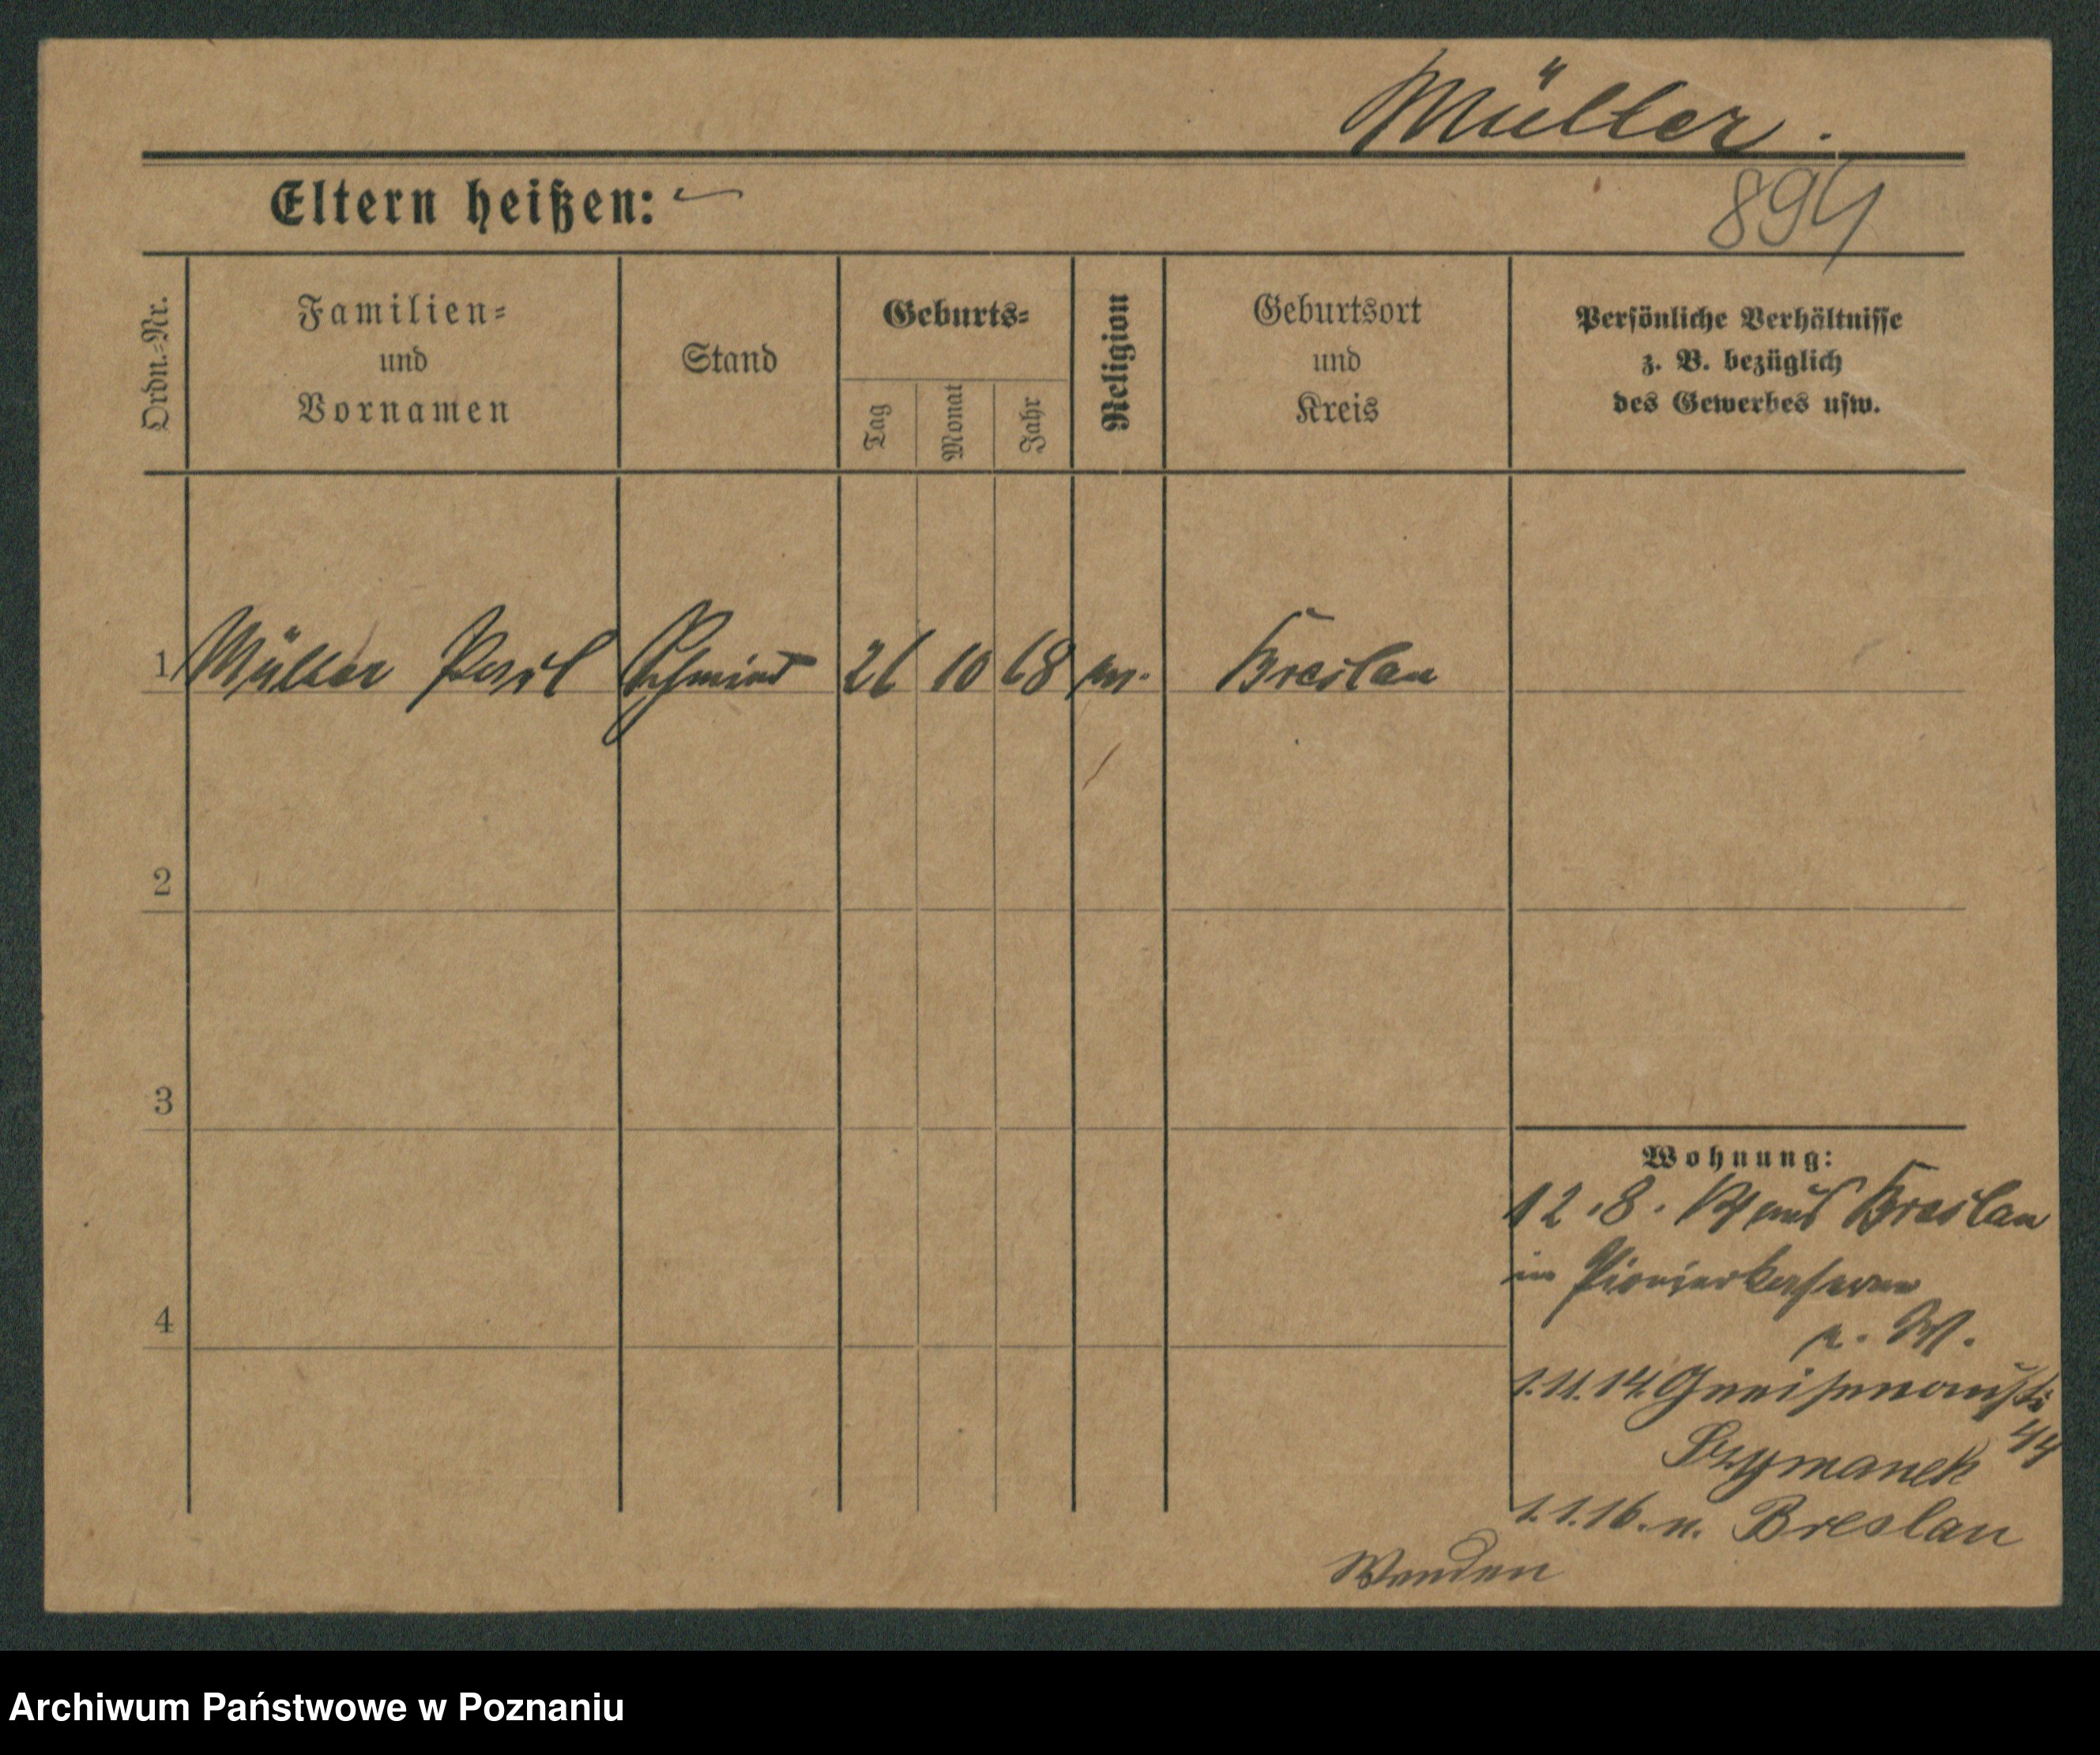 Müller.
Eltern heißen:
894
Ordn.-Nr.
Familien-
und
Vornamen
Stand
Geburts-
Tag
Monat
Jahr
Religion
Geburtsort
und
Kreis
Persönliche Verhältnisse
z. B. bezüglich
des Gewerbes usw.
1 Müller Paul Schmied 26 10 68 Breslau
2
3
4
Wohnung:
12.8.14 aus Breslau
in Pionierkaserne
1.11.14 Gneisenaustr.
44
Szymanek
1.1.16. n. Breslau
Wenden
Archiwum Państwowe w Poznaniu